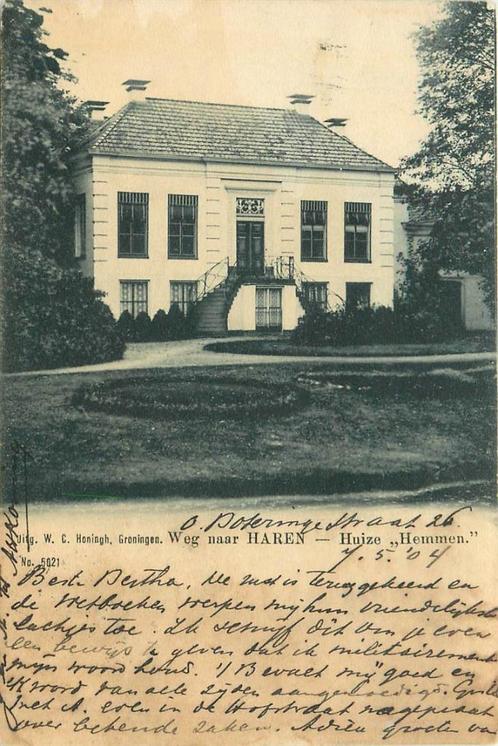 O. Boteringe Straat 26
Uitg. W. C. Honingh, Groningen. Weg naar HAREN — Huize „Hemmen."
No. 5021
7.5.'04
Beste Bertha. De rust is teruggekeerd en
de wetboeken werpen mij hun vriendelijkste
lachjes toe. Ik schrijf dit om je even
een bewijs te geven dat ik militairement
mijn woord houd. 't Bevalt mij goed en
word van alle zijden aangemoedigd.
met A. even in de Hofstraat nagepraat
over bekende zaken. Adieu groeten van